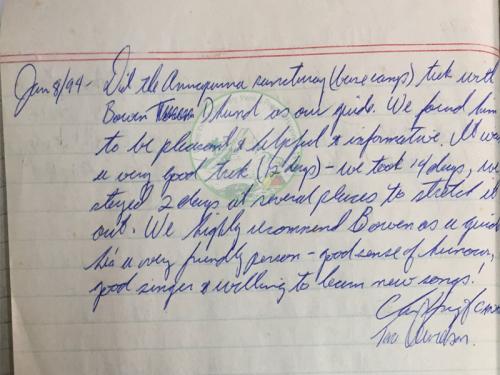 Jan 8/94 - Did the Annapurna sanctuary (base camp) trek with
Bowen Dhund as our guide. We found him
to be pleasant & helpful & informative. It was
a very good trek (12 days) - we took 14 days, we
stayed 2 days at several places to stretch it
out. We highly recommend Bowen as a guide
he's a very friendly person - good sense of humour,
good singer & willing to learn new songs!